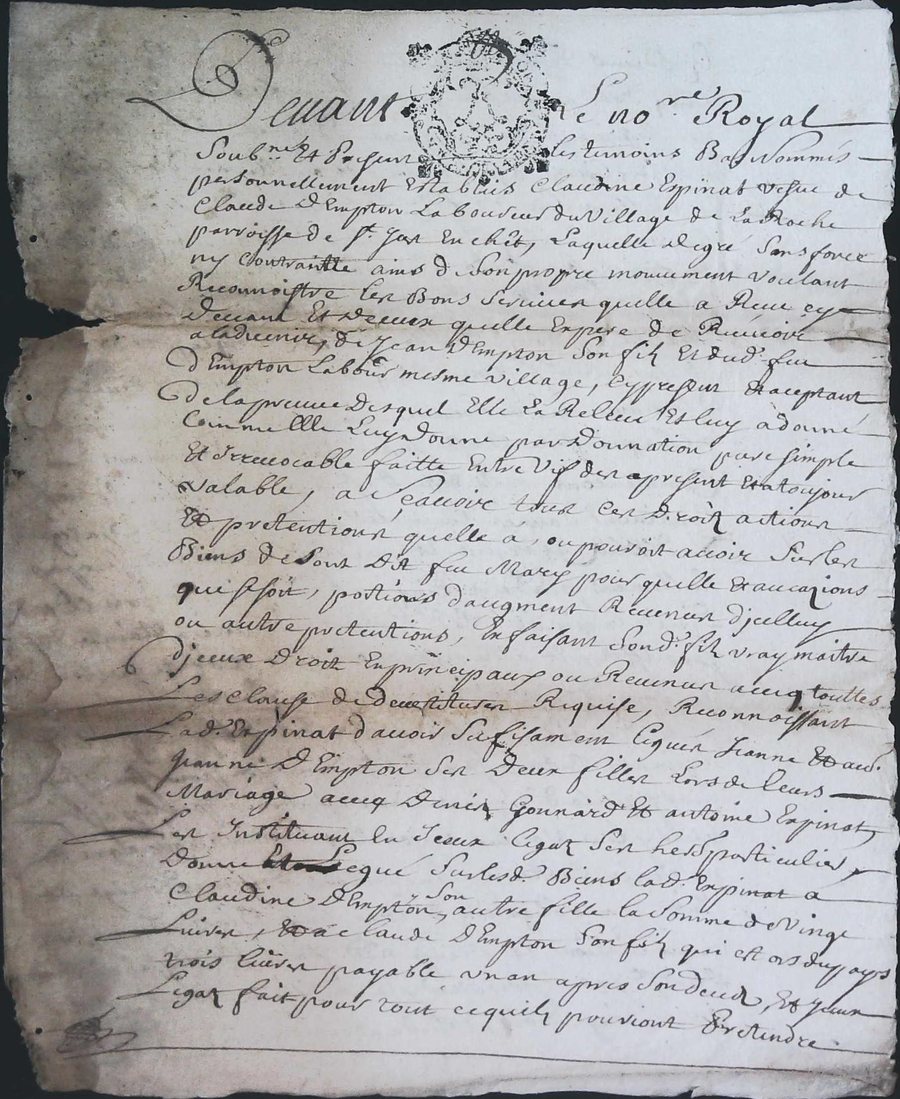 Devant Le no.re Royal
Soub.né Et presents Les temoins Bas Nommés
personnellement Establies Claudine Espinat vefue de
Claude D'Empton Laboureur du village de La Roche
parroisse de St. Just En chêt, Laquelle de gré Sans force
ny Contrainte ains de Son propre mouvement voulant
Reconnoistre les Bons Services quelle a Receu cy
devant Et d'eceux quelle Espere de Recevoir
a ladvenir, de Jean D'Empton Son filz Et dud. feu
D'Empton Labour mesme village, cy present Et aceptant
De la preuve desquel Elle La Releve Et luy a donné
Comme Elle Luy donne par Donnation pure simple
Et Irrevocable faitte Entre Vifs des apresent Et a toujour
valable, a Sçavoir tous ces Droits actions
Et pretentions quelle a, ou pouroit avoir Sur les
Biens de Sont Dit feu Mary pour quelle Et aucazions
que se soit, portions d'augment Revenus d'jcelluy
ou autre pretentions, En faisant Sond. filz vray maitre
d'jceux Droit En principaux ou Revenus avecq touttes
Les Clause de devestitures Requise, Reconnaissant
Lad. Espinat d'avoir Sufisament Legues Jeanne Et aud.
Jeanne D'Empton Ses Deux filles Lors de leurs
Mariage avecq Denis Gonnard Et antoine Espinat,
Les Instituant En Jceux Legaz Ses hers particulies,
Donne Legué Surlesd. Biens lad. Espinat a
Claudine D'Empton, Son autre fille la Somme de Vingt
Livres, Et a Claude D'Empton Son filz qui est ors du pays
trois livres payable un an apres Son deced, Et Jceux
Legaz fait pour tout ce quilz pouriont Pretendre